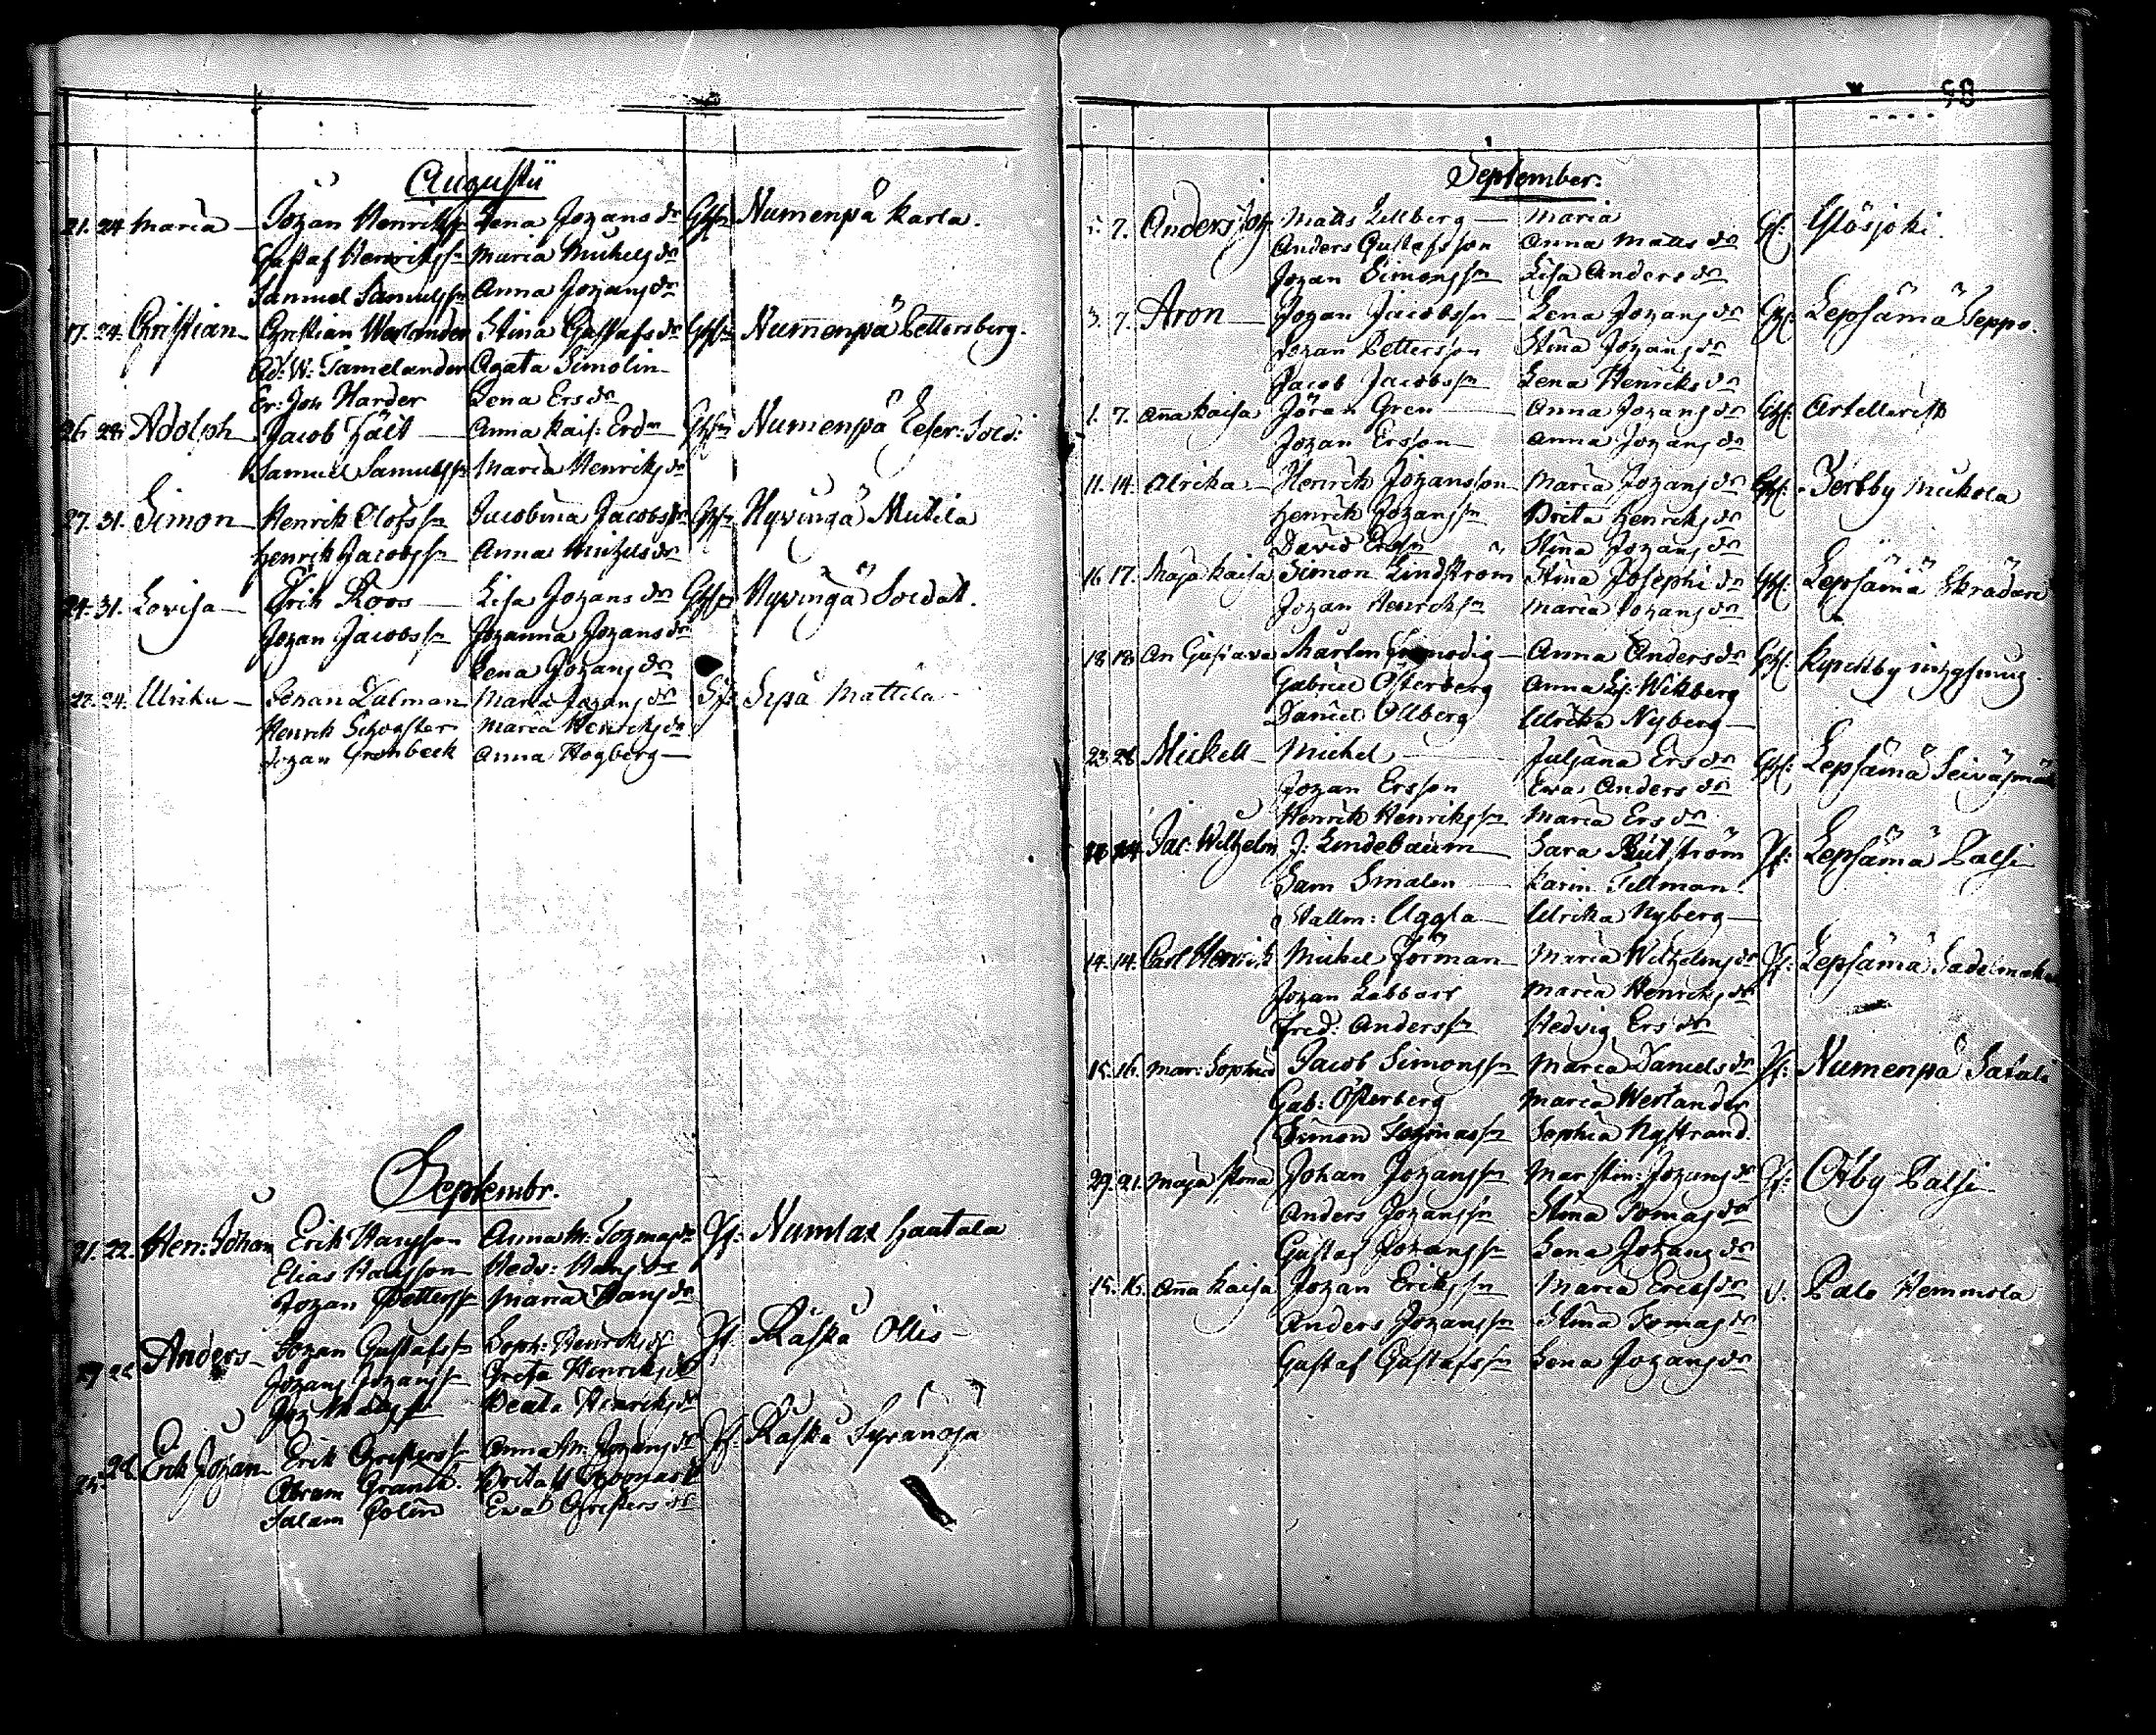 Augustii
21. 24. Maria — Johan Henrikss: Lena Johans dr Numenpä Karla.
Gustaf Henrikss: Maria Mickels dr
Samuel Samuelss: Anna Johans dr
17. 24. Christian — Christian Werlander Stina Gustafs dr Numenpä Pettersberg.
Ad: W: Tamelander Agata Simolin —
Er: Joh Harder Lena Ers dr
26. 28. Adolph — Jacob Fält — Anna Kais: Ers dr Numenpä
Samuel Samuelss: Maria Henriks dr
27. 31. Simon — Henrik Olofss: Jacobina Jacobs dr Hyvingä Mutila
Henrik Jacobss: Anna Michels dr
24. 31. Lovisa — Erik Roos — Lisa Johans dr Hyvingä Soldat.
Johan Jacobss: Johanna Johans dr
Lena Johans dr
22. 24. Ulrika — Johan Dalman Maria Johans dr Sepä Mattila
Henrik Maria Henriks dr
Johan Grönbeck Anna Högberg —
Septembr.
21. 22. Hen: Johan Erik Hansson Anna M: Tomas dr Numlax Haatala
Elias Hansson Hedv: Hans dr
Johan Petterss: Maria Hans dr
Anders — Johan Gustafss: Soph: Henriks dr Räskä Ollis —
Johan Johanss: Greta Henriks dr
Beata Henriks dr
Erik Johan Erik Christerss: Anna M: Johans dr Räskä Syränoja
Abram Granli:
Salam Polin Eva Christers dr
98
September.
7. Anders Joh: Matts Lillberg — Maria Ylösjoki.
Anders Gustafsson Anna Matts dr
Johan Simonss: Lisa Anders dr
3. 7. Aron — Johan Jacobss: Lena Johans dr Lepsämä Seppo.
Johan Pettersson Stina Johans dr
Jacob Jacobss: Lena Henriks dr
1. 7. Ana Kaisa Jöran Gren — Anna Johans dr Artellerist
Johan Ersson Anna Johans dr
11. 14. Ulrika — Henrik Johansson Maria Johans dr Perttby Mickola
Henrik Johanss: Brita Henriks dr
David Erss: Stina Johans dr
16. 17. Maja Kaisa Simon Lindström Stina Josephs dr Lepsämä Skrädare
Johan Henrikss: Maria Johans dr
18. 18. An Gustava Mårten Anna Anders dr
Gabriel Österberg Anna Wikberg
Daniel Ollberg Ulrika Nyberg —
23. 28. Mickell — Michel — Juljana Ers dr Lepsämä
Johan Ersson Eva Anders dr
Henrik Henrikss: Maria Ers dr
Jac: Wilhelm J: Lindebaum — Sara Lepsämä Palsi
Sam Smalen — Karin Tillman.
Stallm: Uggla — Ulrika Nyberg —
14. 14. Carl Henrik Michel Förman — Maria Wilhelms dr Lepsämä Sadelmakare
Johan Maria Henriks dr
Fred: Anderss: Hedvig Ers dr
15. 16. Mar: Sophia Jacob Simonss: Maria Daniels dr Numenpä
Gab: Österberg Maria Werlander
Simon Tomass: Sophia Nystrand.
21. Maja Stina Johan Johanss: Mar Stin: Johans dr Olby Palsi —
Anders Johanss: Stina Tomas dr
Gustaf Johanss: Lena Johans dr
15. 16. Ana Kaisa Johan Erikss: Maria Erics dr Palo Hemmola
Anders Johanss: Stina Tomas dr
Gustaf Gustafss: Lena Johans dr